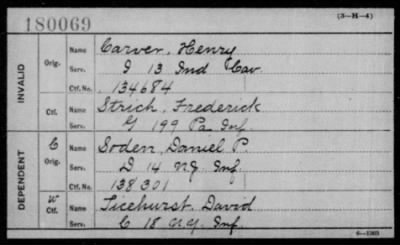 180069
(3-H-4)
INVALID
Orig.
Name Carver, Henry
Serv. I 13 Ind Cav.
Ctf. No. 134684
Ctf.
Name Strich, Frederick
Serv. G 199 Pa Inf.
DEPENDENT
C
Orig.
Name Soden, Daniel P.
Serv. D 14 N.J. Inf.
Ctf. No. 138301
W
Ctf.
Name Ticehurst, David
Serv. C 18 N.Y. Inf.